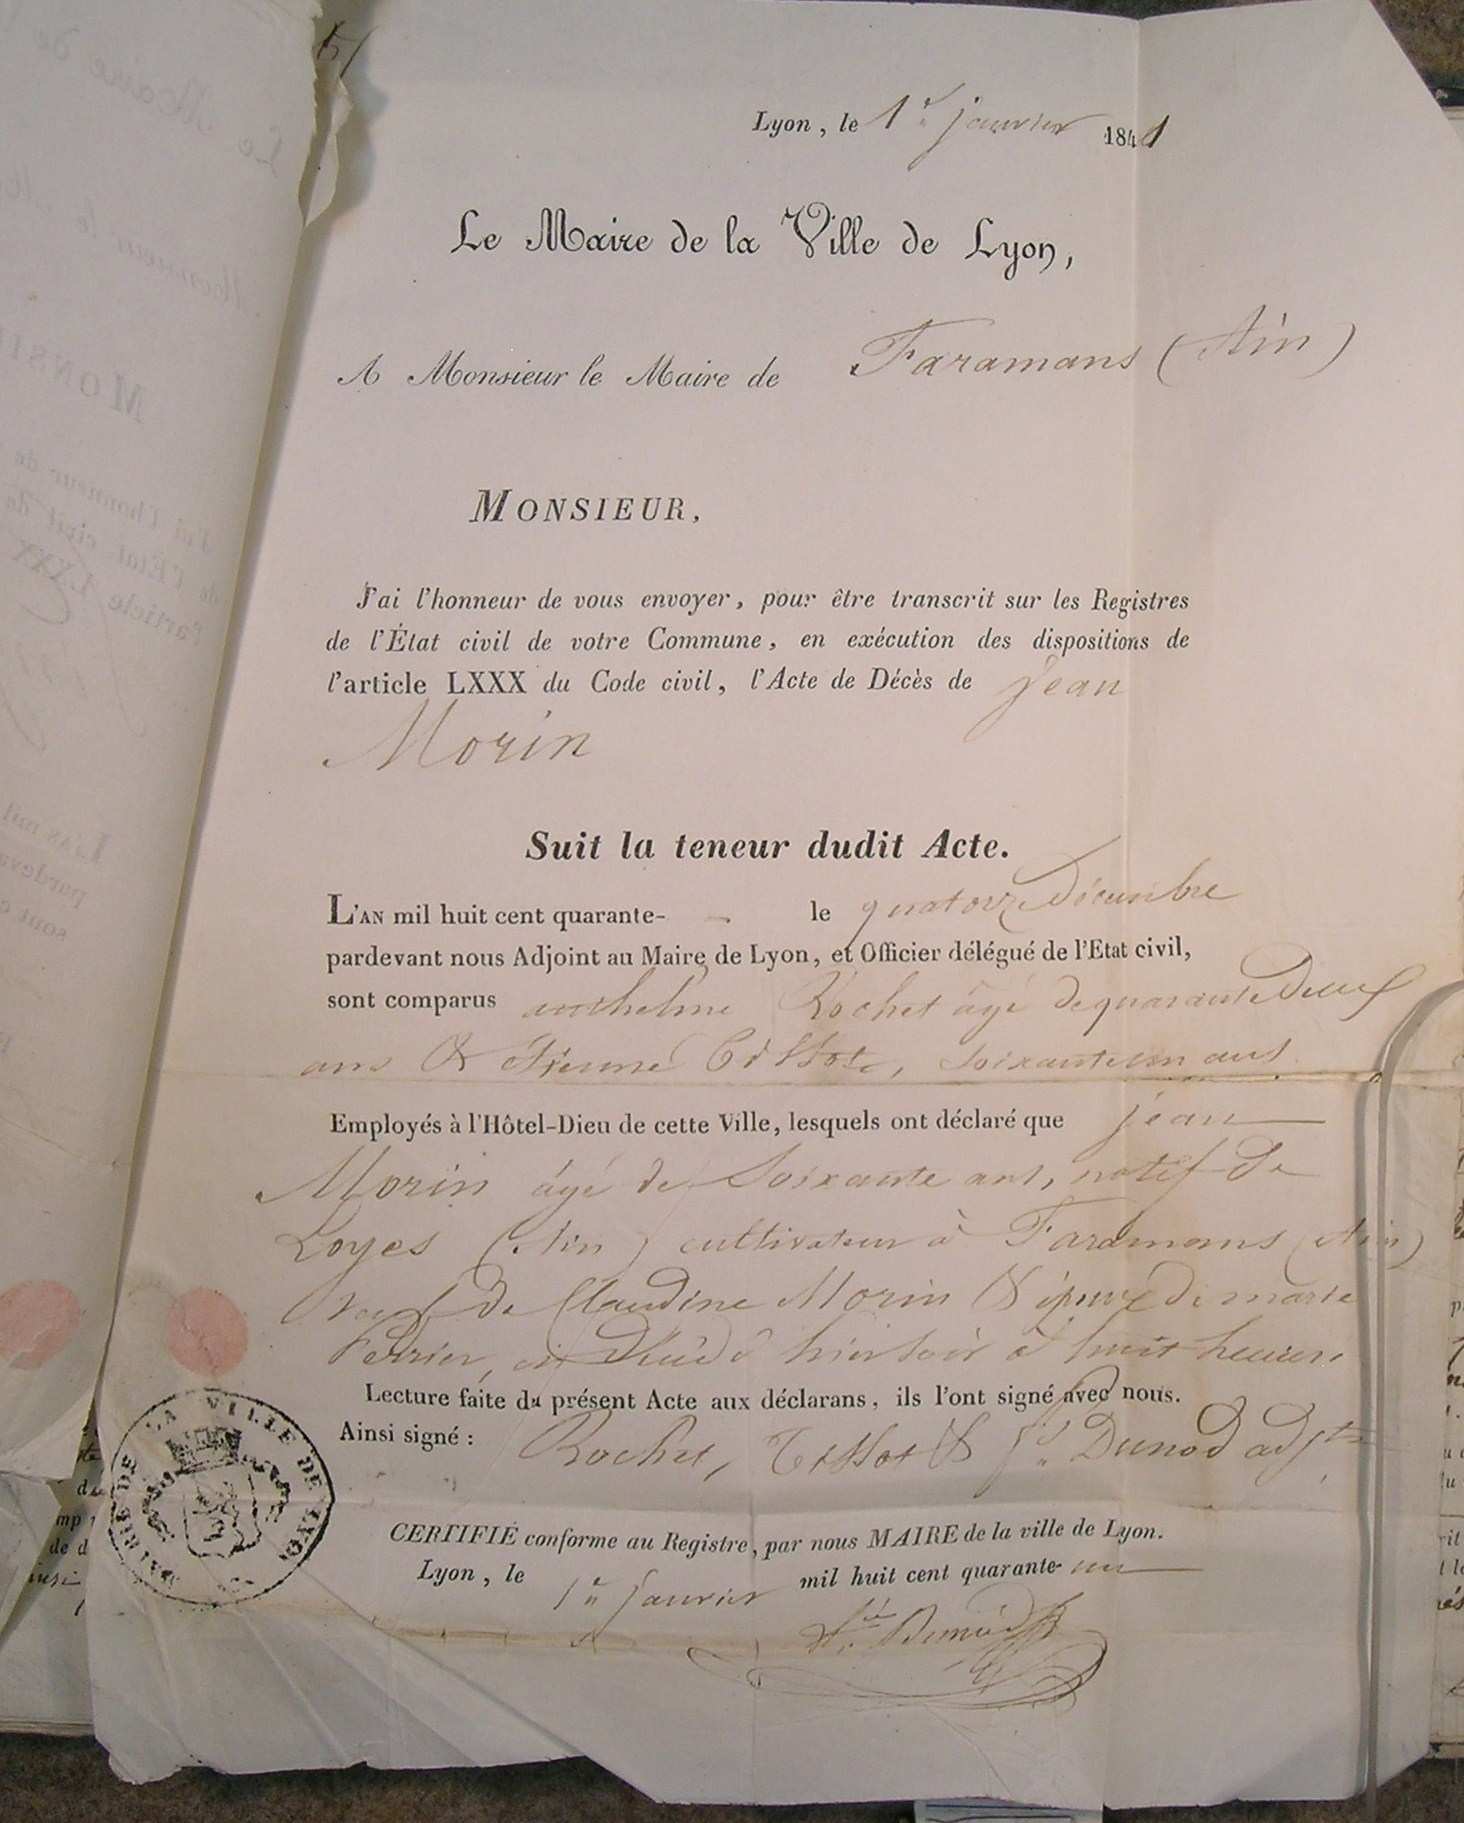 Lyon, le 1er janvier 1841
Le Maire de la Ville de Lyon,
A Monsieur le Maire de Faramans (Ain)
MONSIEUR,
J'ai l'honneur de vous envoyer, pour être transcrit sur les Registres
de l'État civil de votre Commune, en exécution des dispositions de
l'article LXXX du Code civil, l'Acte de Décès de jean
Morin
Suit la teneur dudit Acte.
L'AN mil huit cent quarante- - le quatorze Décembre
pardevant nous Adjoint au Maire de Lyon, et Officier délégué de l'Etat civil,
sont comparus anthelme Rochet âgé de quarante Deux
ans & Etienne Tissot, soixante un ans
Employés à l'Hôtel-Dieu de cette Ville, lesquels ont déclaré que jean
Morin âgé de Soixante ans, natif de
Loyes (Ain) cultivateur à Faramans (Ain)
veuf de Claudine Morin & époux de marie
Perrier, est Décédé hier soir à huit heures,
Lecture faite du présent Acte aux déclarans, ils l'ont signé avec nous.
Ainsi signé : Rochet, Tissot & Dunod adjt
CERTIFIÉ conforme au Registre, par nous MAIRE de la ville de Lyon.
Lyon, le 1er janvier mil huit cent quarante- un
MAIRIE DE LA VILLE DE LYON